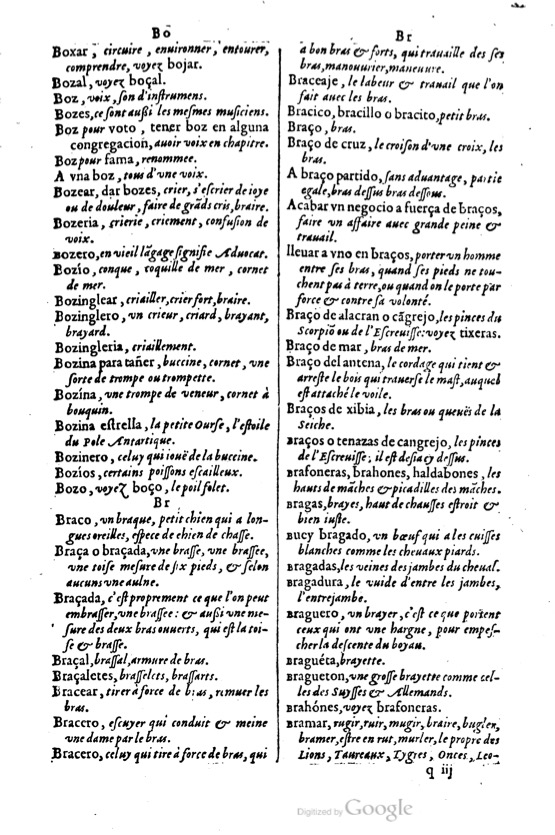 Bo
Boxar, circuire, enuironner, entourer,
comprendre, voyez bojar.
Bozal, voyez boçal.
Boz, voix, son d'instrumens.
Bozes, ce sont aussi les mesmes musiciens.
Boz por voto, tener boz en alguna
congregacion, auoir voix en chapitre.
Boz por fama, renommee.
A vna boz, tous d'vne voix.
Bozear, dar bozes, crier, s'escrier de ioye
ou de douleur, faire de grãds cris, braire.
Bozeria, crierie, criement, confusion de
voix.
Bozero, en vieil lãgage signifie Aduocat.
Bozío, conque, coquille de mer, cornet
de mer.
Bozinglear, criailler, crier fort, braire.
Bozinglero, vn crieur, criard, brayant,
brayard.
Bozingleria, criaillement.
Bozina para tañer, buccine, cornet, vne
sorte de trompe ou trompette.
Bozína, vne trompe de veneur, cornet à
bouquin.
Bozina estrella, la petite Ourse, l'estoile
du Pole Antartique.
Bozinero, celuy qui iouë de la buccine.
Bozíos, certains poissons escailleux.
Bozo, voyez boço, le poil folet.
Br
Braco, vn braque, petit chien qui a lon-
gues oreilles, espece de chien de chasse.
Braça o braçada, vne brasse, vne brassée,
vne toise mesure de six pieds, & selon
aucuns vne aulne.
Braçada, c'est proprement ce que l'on peut
embrasser, vne brassee: & aussi vne me-
sure des deux bras ouuerts, qui est la toi-
se & brasse.
Braçal, brassal, armure de bras.
Braçaletes, brasselets, brassarts.
Bracear, tirer à force de bras, remuer les
bras.
Braccro, escuyer qui conduit & meine
vne dame par le bras.
Bracero, celuy qui tire à force de bras, qui
Br
a bon bras & forts, qui trauaille des ses
bras, manouurier, maneuure.
Braceaje, le labeur & trauail que l'on
fait auec les bras.
Bracico, bracillo o bracito, petit bras.
Braço, bras.
Braço de cruz, le croison d'vne croix, les
bras.
A braço partido, sans aduantage, partie
egale, bras dessus bras dessous.
Acabar vn negocio a fuerça de braços,
faire vn affaire auec grande peine &
trauail.
lleuar a vno en braços, porter vn homme
entre ses bras, quand ses pieds ne tou-
chent pas à terre, ou quand on le porte par
force & contre sa volonté.
Braço de alacran o cãgrejo, les pinces du
Scorpiõ ou de l'Escreuisse: voyez tixeras.
Braço de mar, bras de mer.
Braço del antena, le cordage qui tient &
arreste le bois qui trauerse le mast, auquel
est attaché le voile.
Braços de xibia, les bras ou queuës de la
Seiche.
Braços o tenazas de cangrejo, les pinces
de l'Escreuisse; il est desia cy dessus.
Brafoneras, brahones, haldabones, les
hauts de mãches & picadilles des mãches.
Bragas, brayes, haut de chausses estroit &
bien iuste.
Bucy bragado, vn bœuf qui a les cuisses
blanches comme les cheuaux piards.
Bragadas, les veines des jambes du cheual.
Bragadura, le vuide d'entre les jambes,
l'entrejambe.
Braguero, vn brayer, c'est ce que portent
ceux qui ont vne hargne, pour empes-
cher la descente du boyau.
Braguéta, brayette.
Bragueton, vne grosse brayette comme cel-
les des Suysses & Allemands.
Brahónes, voyez brafoneras.
Bramar, rugir, ruir, mugir, braire, bugler,
bramer, estre en rut, murler, le propre des
Lions, Taureaux, Tygres, Onces, Leo-
q iij
Digitized by Google